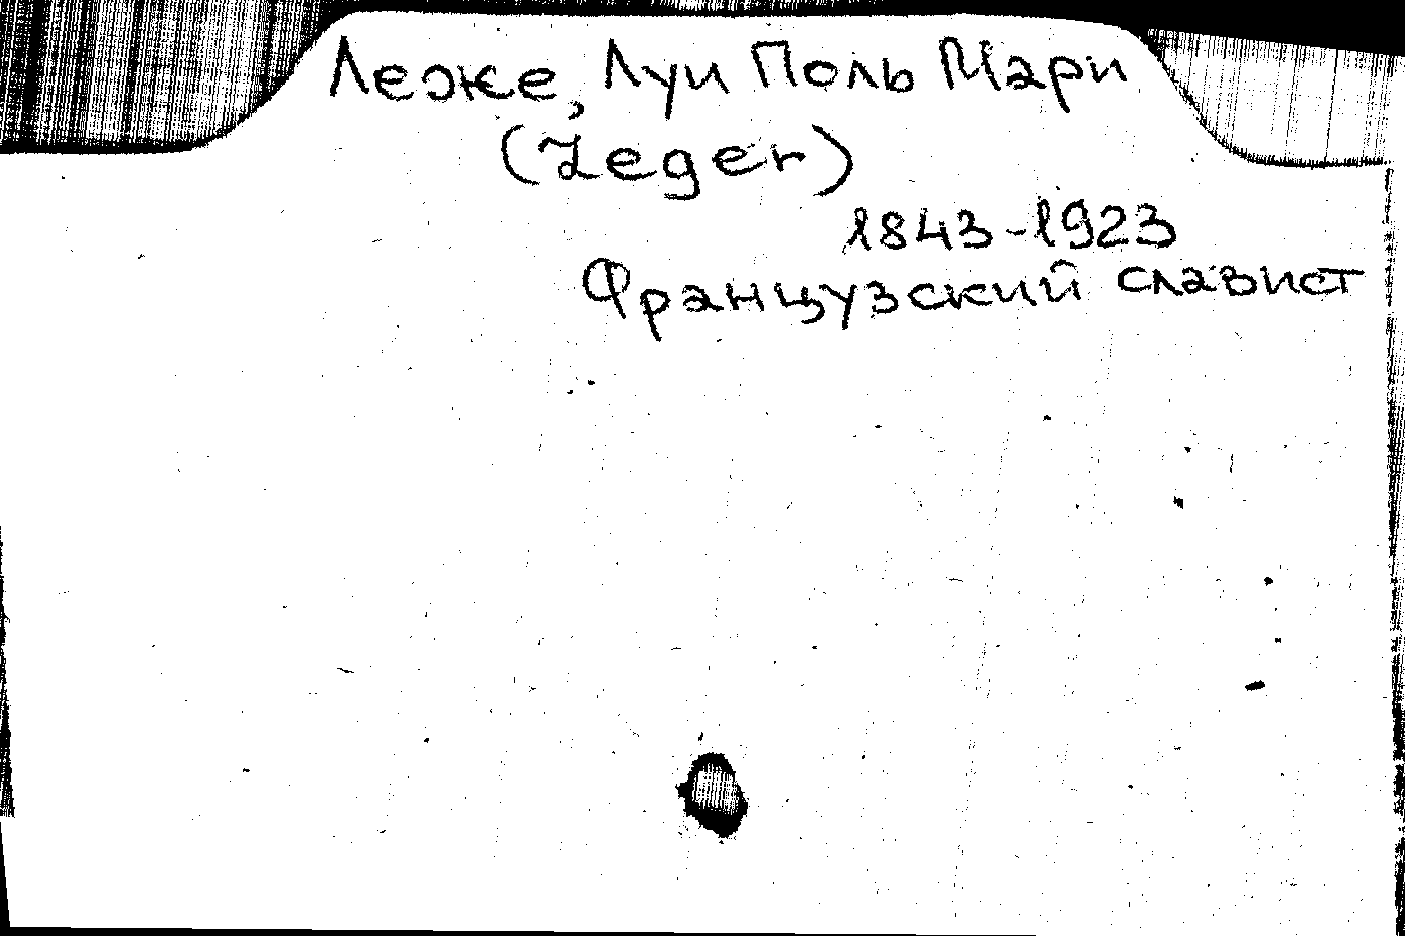 Леже, Луи Поль Мари
(Leger)
1843-1923
Французский славист